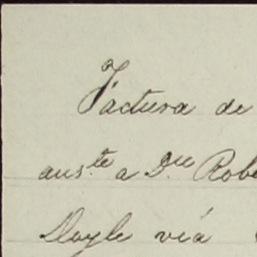 Factura de
aus.te a D.ña Robe
Doyle vía